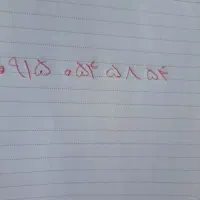 ۰۹۱۵ ۰۵۴ ۵۸ ۵۴